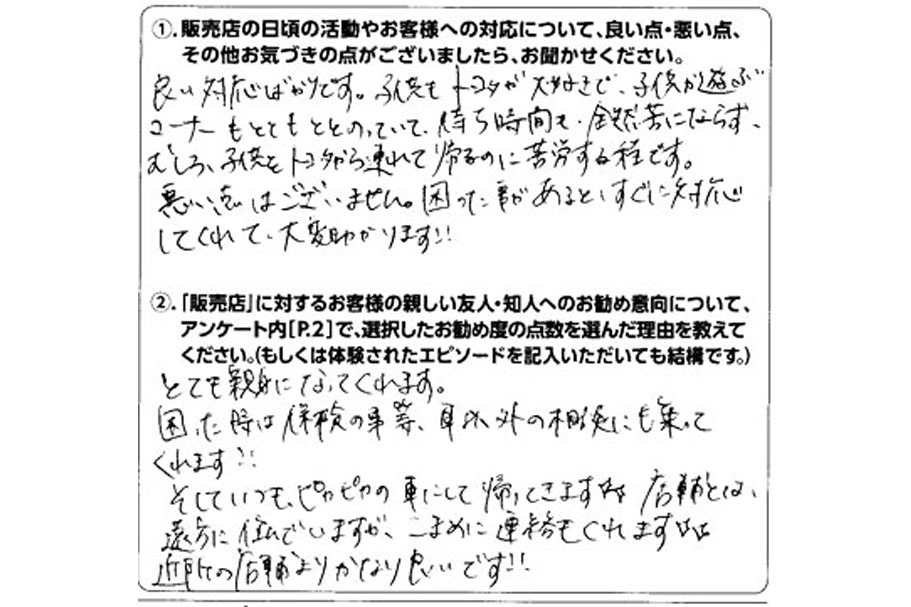 ①.販売店の日頃の活動やお客様への対応について、良い点・悪い点、
その他お気づきの点がございましたら、お聞かせください。
良い対応ばかりです。子供もトヨタが大好きで、子供が遊ぶ
コーナーもとてもととのっていて、待ち時間も、全然苦にならず、
むしろ、子供をトヨタから連れて帰るのに苦労する程です。
悪い点はございません。困った事があると、すぐに対応
してくれて、大変助かります!!
②.「販売店」に対するお客様の親しい友人・知人へのお勧め意向について、
アンケート内[P.2]で、選択したお勧め度の点数を選んだ理由を教えて
ください。(もしくは体験されたエピソードを記入いただいても結構です。)
とても親身になってくれます。
困った時は保険の事等、車以外の相談にも乗って
くれます!!
そしていつも、ピカピカの車にして帰ってきます 店舗とは、
遠方に住んでいますが、こまめに連絡もくれます
近所の店舗よりかなり良いです!!